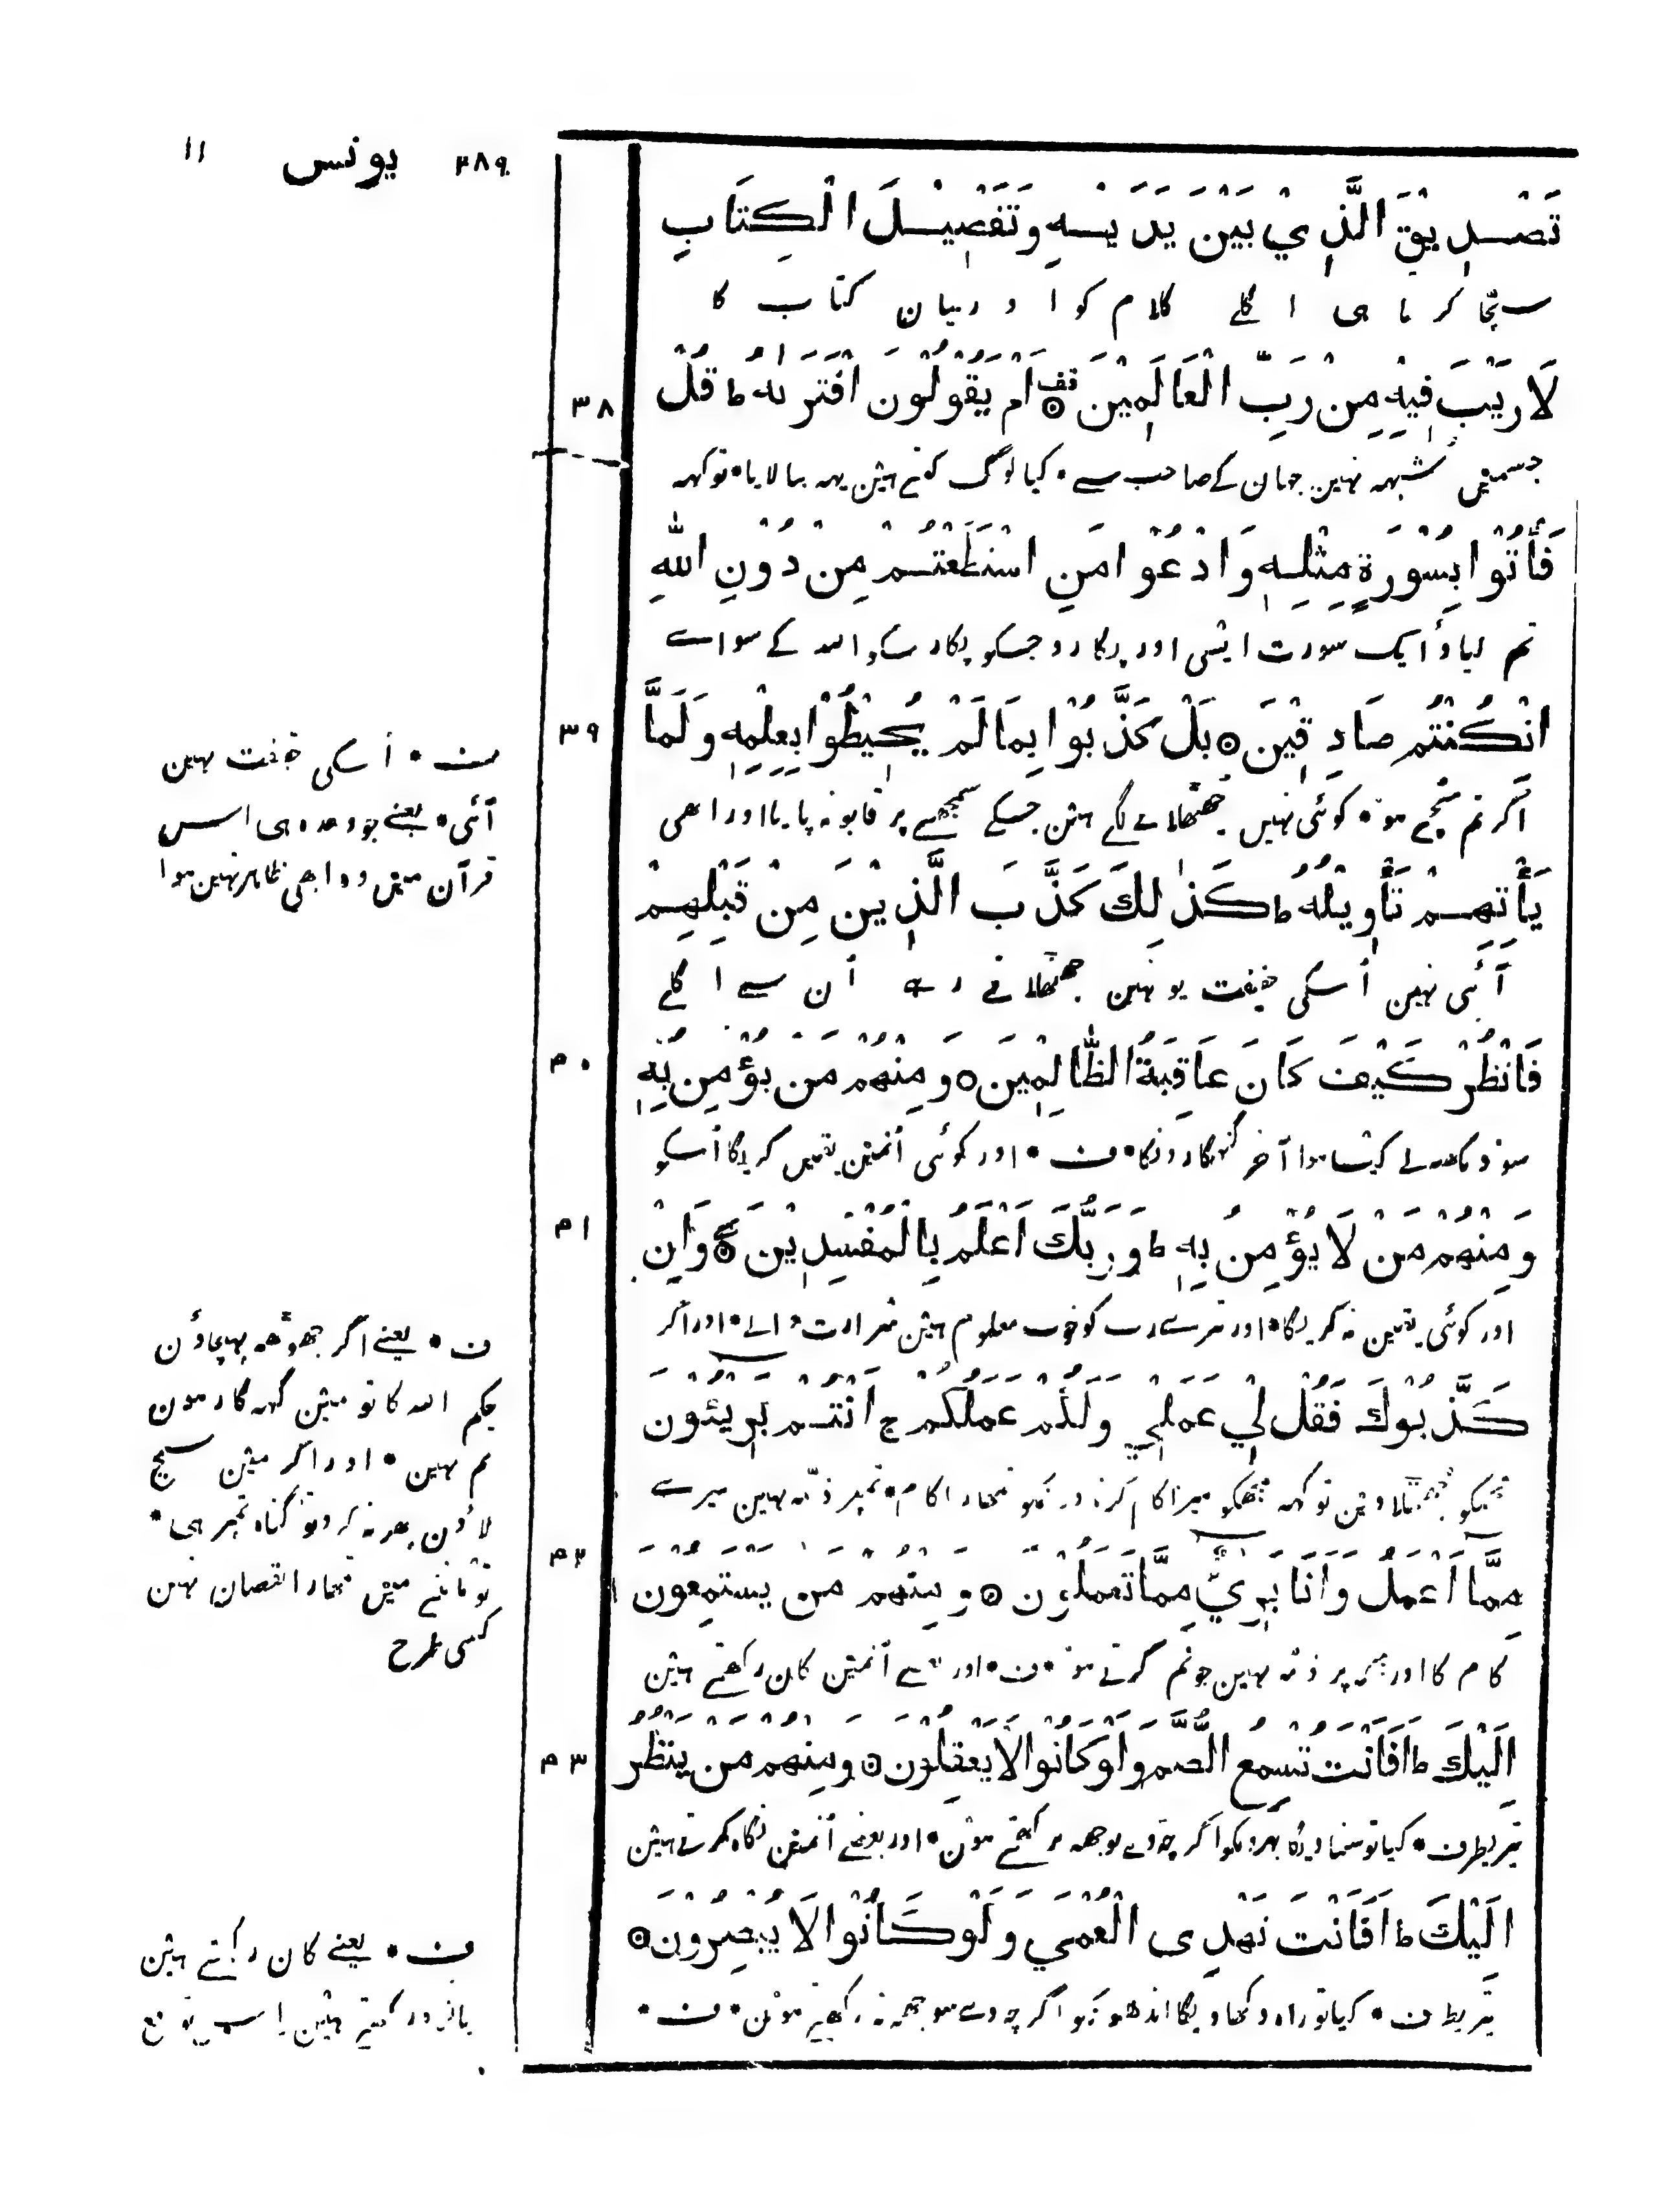 ۳۸۹ يونس ۱۱
تَصْدِيْقَ الَّذِيْ بَيْنَ يَدَيْهِ وَتَفْصِيْلَ الْكِتَابِ
سچّا کرتا ہی اگلے کلام کو اور بیان کتاب کا
۳۸
لَا رَيْبَ فِيْهِ مِنْ رَبِّ الْعَالَمِيْنَ ۝ قف اَمْ يَقُوْلُوْنَ افْتَرٰىهُ ط قُلْ
جسمین شبہہ نہین جہان کے صاحب سے * کیا لوگ کہتے ہین یہہ بنا لایا * تو کہہ
فَأْتُوْا بِسُوْرَةٍ مِثْلِهٖ وَادْعُوْا مَنِ اسْتَطَعْتُمْ مِنْ دُوْنِ اللّٰهِ
تم لیاؤ ایک سورت ایسی اور پکارو جسکو پکار سکو اللہ کے سواے
۳۹
اِنْ كُنْتُمْ صَادِقِيْنَ ۝ بَلْ كَذَّبُوْا بِمَا لَمْ يُحِيْطُوْا بِعِلْمِهٖ وَلَمَّا
اگر تم سچّے ہو * کوئی نہیں جھٹھلانے لگے ہین جسکے سمجھنے پر قابو نہ پایا اور ابھی
يَأْتِهِمْ تَأْوِيْلُهُ ط كَذٰلِكَ كَذَّبَ الَّذِيْنَ مِنْ قَبْلِهِمْ
آئی نہین اُسکی حقیقت یونہین جھٹھلاتے رہے اُن سے اگلے
۴۰
فَانْظُرْ كَيْفَ كَانَ عَاقِبَةُ الظَّالِمِيْنَ ۝ وَمِنْهُمْ مَنْ يُؤْمِنُ بِهٖ
سو دیکھہ لے کیسا ہوا آخر گنہگارونکا * ف * اور کوئی اُنمین یقین کریگا اُسکو
۴۱
وَمِنْهُمْ مَنْ لَا يُؤْمِنُ بِهٖ ط وَرَبُّكَ اَعْلَمُ بِالْمُفْسِدِيْنَ ۝ وَاِنْ
اور کوئی یقین نہ کریگا * اور تیرے رب کو خوب معلوم ہین شرارت والے * اور اگر
كَذَّبُوْكَ فَقُلْ لِيْ عَمَلِيْ وَلَكُمْ عَمَلُكُمْ ج اَنْتُمْ بَرِيْئُوْنَ
تجھکو جھٹھلاوین تو کہہ مجھکو میرا کام کرنا اور تمکو تمھارا کام * تمپر ذمّہ نہین میرے
۴۲
مِمَّا اَعْمَلُ وَاَنَا بَرِيْءٌ مِمَّا تَعْمَلُوْنَ ۝ وَمِنْهُمْ مَنْ يَسْتَمِعُوْنَ
کام کا اور مجھہ پر ذمّہ نہین جو تم کرتے ہو * ف * اور بعضے اُنمین کان رکھتے ہین
۴۳
اِلَيْكَ ط اَفَاَنْتَ تُسْمِعُ الصُّمَّ وَلَوْ كَانُوْا لَا يَعْقِلُوْنَ ۝ وَمِنْهُمْ مَنْ يَنْظُرُ
تیریطرف * کیا تو سناویگا بہرونکو اگرچہ وے بوجھہ نہ رکھتے ہون * اور بعضے اُنمین نگاہ کرتے ہین
اِلَيْكَ ط اَفَاَنْتَ تَهْدِى الْعُمْيَ وَلَوْ كَانُوْا لَا يُبْصِرُوْنَ ۝
تیریطرف * کیا تو راہ دکھاویگا اندھونکو اگرچہ وے سوجھہ نہ رکھتے ہون * ف *
ف * اُسکی حقیقت نہین
آئی * یعنے جو وعدہ ہی اس
قرآن مین وہ ابھی ظاہر نہین ہوا
ف * یعنے اگر جھوٹھہ پہنچاؤن
حکم اللہ کا تو مین گنہگار ہون
تم نہین * اور اگر مین سچ
لاؤن پھر نہ کرو تو گناہ تمپر ہی *
تو ماننے مین تمھارا نقصان نہین
کسی طرح
ف * یعنے کان رکھتے ہین
یا نگاہ کرتے ہین اس توقع